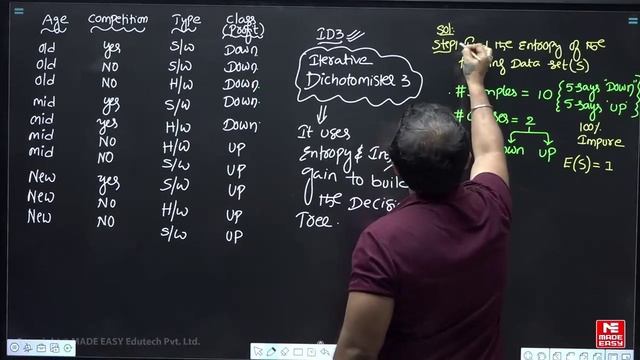 Age Competition Type Class (Profit)
old yes S/W Down
old NO S/W Down
old NO H/W Down
mid yes S/W Down
mid yes H/W Down
mid NO H/W UP
NO S/W UP
New yes S/W UP
New NO H/W UP
New NO S/W UP
ID3
Iterative
Dichotomister 3
It uses
Entropy &
gain to build
the Decisi
Tree.
Sol:
Step1 the Entropy of the
Data set(S)
# Samples = 10 { 5 says "Down"
5 says "UP" }
= 2
own UP
100%
Impure
E(S) = 1
MADE EASY Edutech Pvt. Ltd.
ME
MADE
EASY